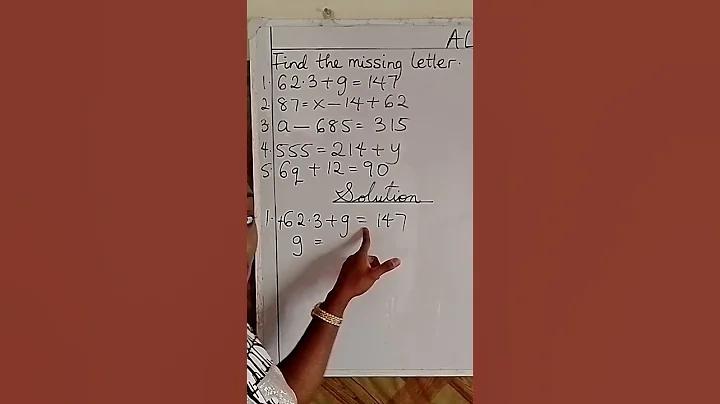 AL
Find the missing letter.
1. 62.3 + g = 147
2. 87 = x - 14 + 62
3. a - 685 = 315
4. 555 = 214 + y
5. 6q + 12 = 90
Solution
1. +62.3 + g = 147
g =